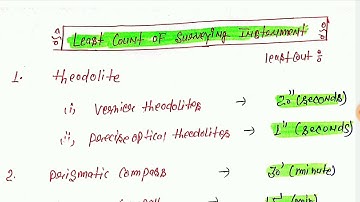 Least Count Of Surveying Instrument
least cout %
1. theodolite
(i) Vernier theodolites → 20" (seconds)
(ii) precise optical theodolites → 1" (seconds)
2. prismatic compass → 30' (minute)